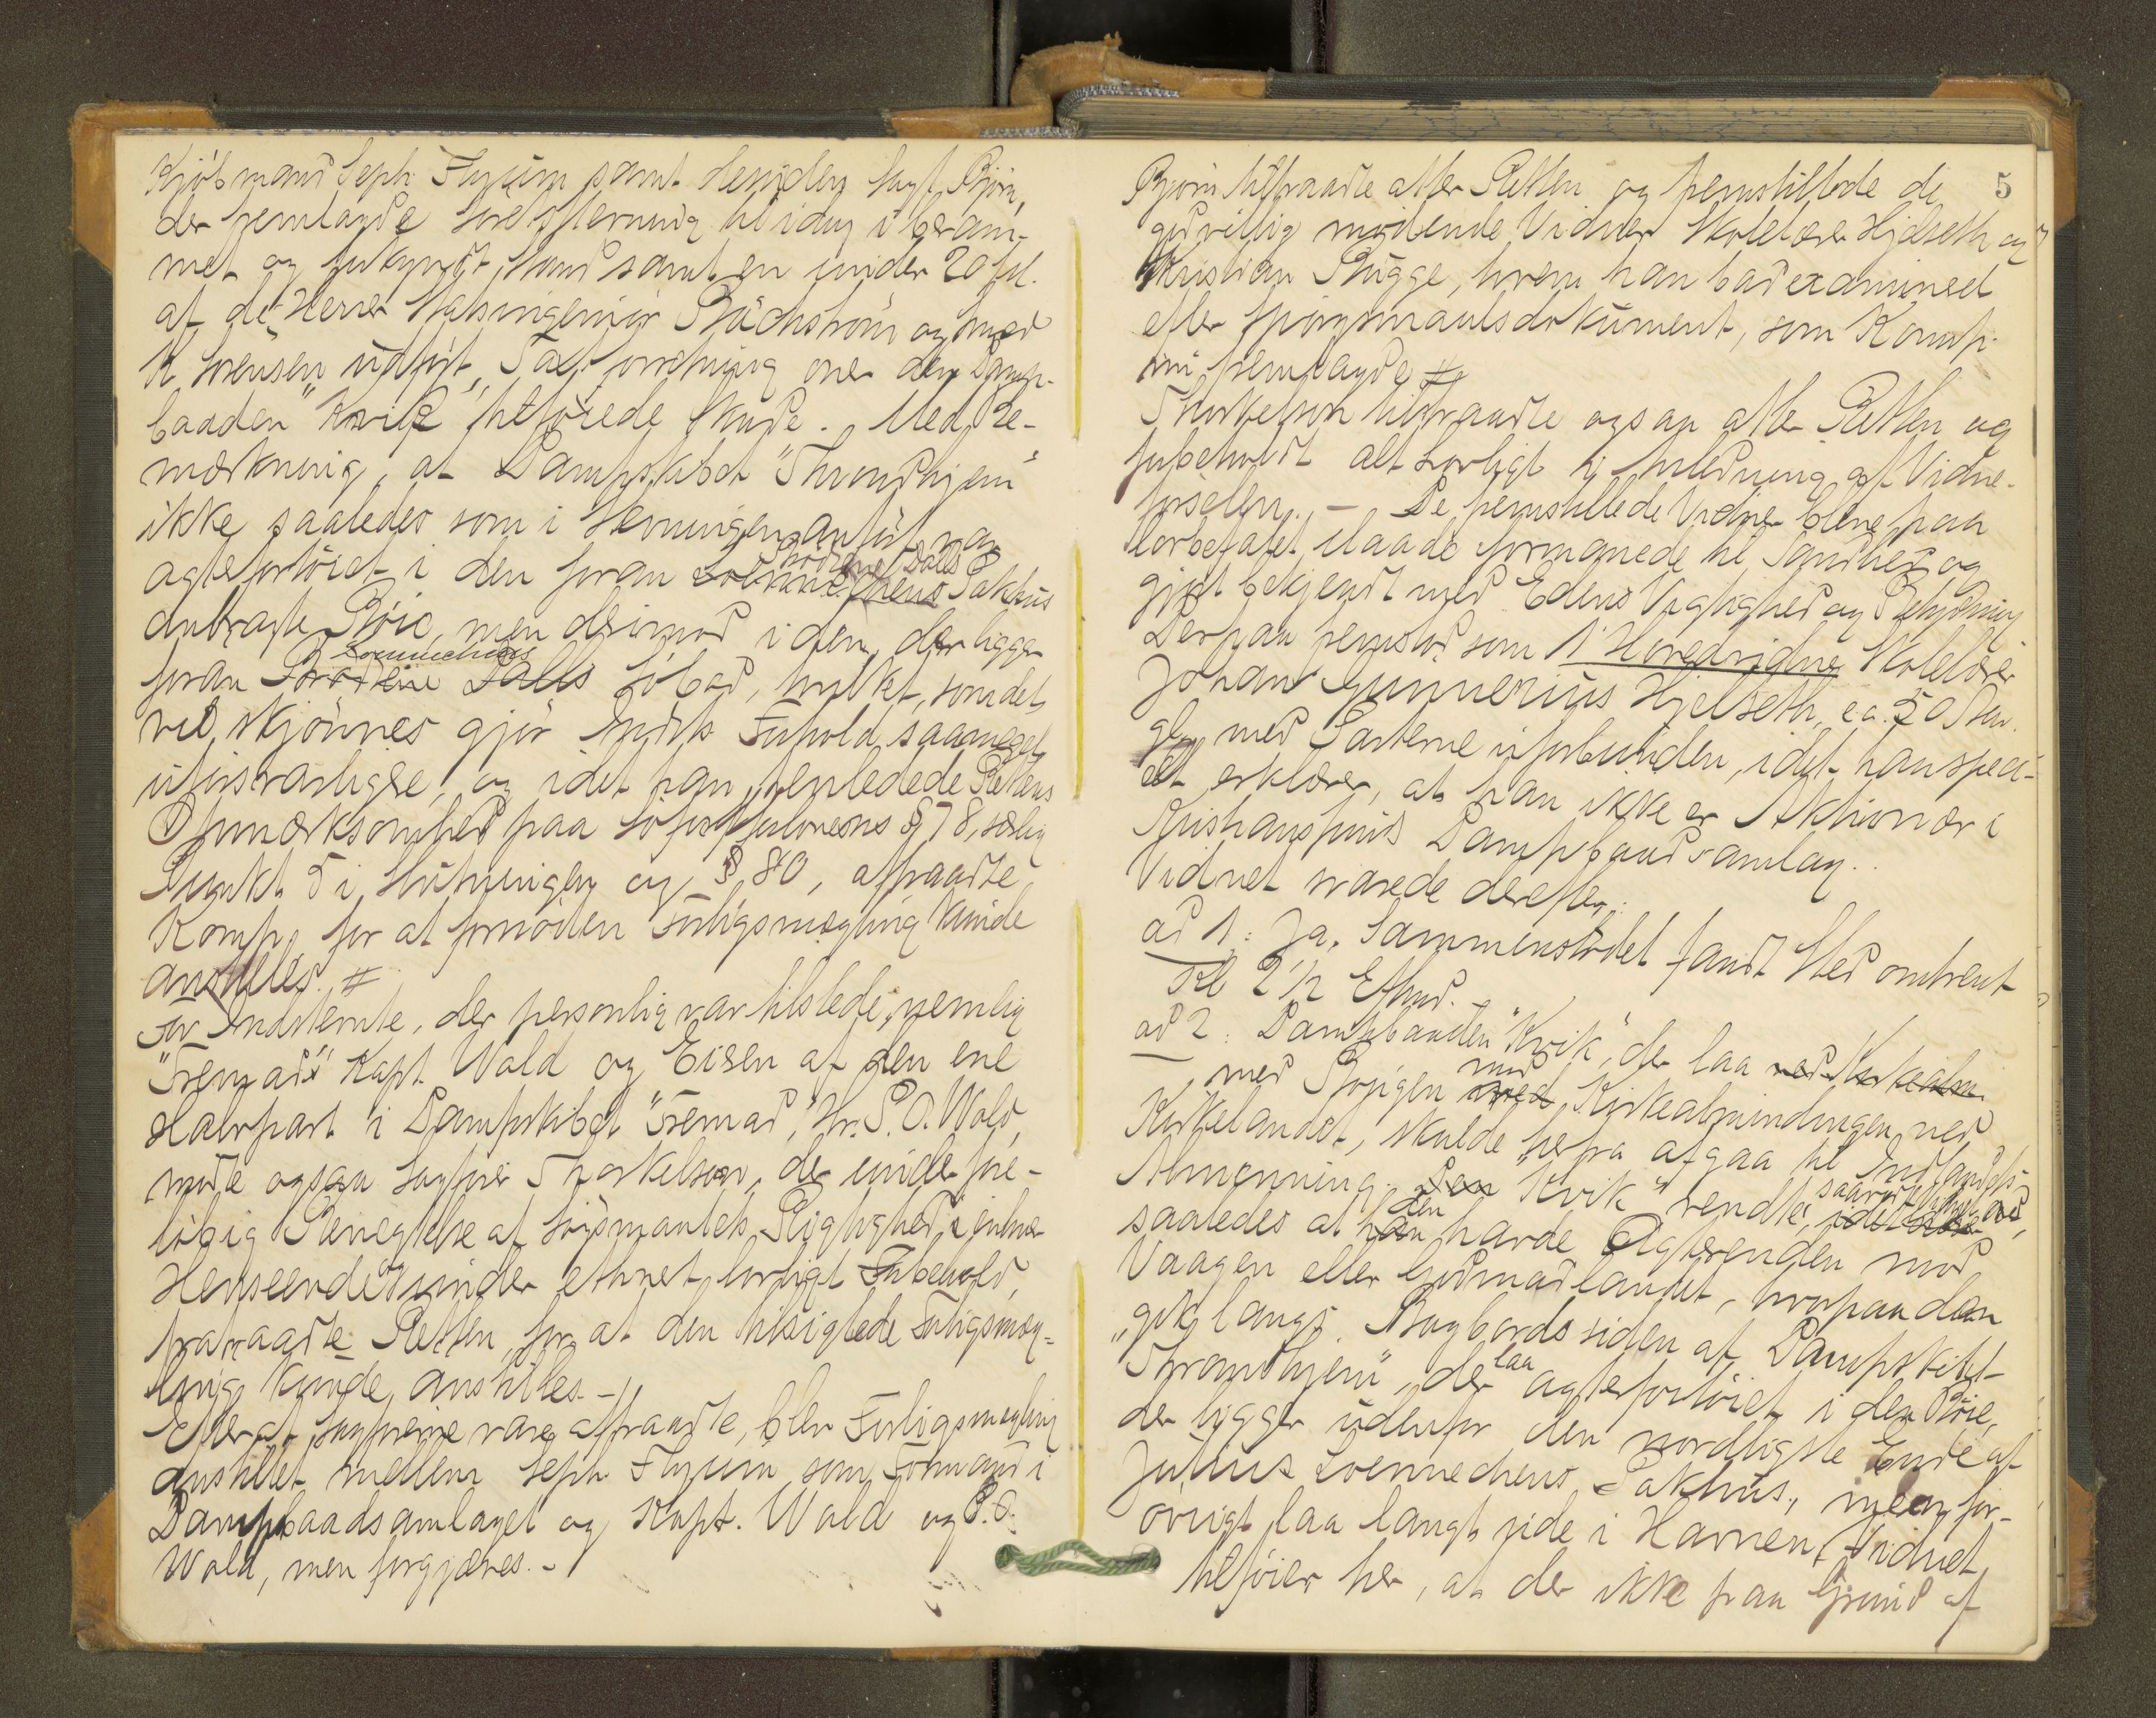 Kjöbmand Seph Flyum samt desuden Sagf. Bjørn,
der fremlagde Sørettsstevning til idag i beram-
met og forkyndt Stand samt en under 20 ful.
af de Herrer Stadsingeniør Bächström og Smed
K Sørensen udført Taxtforretning over den Damp-
baaden "Kvik" tilføiede Skade. Med Be-
mærkning, at Dampskibet "Throndhjem"
ikke saaledes som i Stevningen anført var
agterfortöiet i den foran Brödrene Dalls Pakhus
anbragte Böie, men derimod i den, der ligger
foran Brödrene Loennechens Dalls Söbod, hvilket, som det
vil skjönnes gjør Indst's Forhold saameget
uforsvarligere, og idet han henledede Rettens
Opmærksomhed paa Söfartslovens § 78, særlig
Punkt 5 i Slutningen og § 80, aftraadte
Komp. for at fornöden Forligsmægling kunde
anstilles. #
For Indstevnte, der personlig var tilstede, nemlig
"Fremad's" Kapt. Wold og Eieren af den ene
Halvpart i Dampskibet "Fremad", Hr. P. O. Wold,
mödte ogsaa Sagförer Thorkelson, der under fore-
löbig Benegtelse af Sögsmaalets Rigtighed i enhver
Henseende og under ethvert lovligt Forbehold,
fratraadte Retten, for at den tilsigtede Forligsmæg-
ling kunde anstilles. -
Efterat Sagförerne vare aftraadte, blev Forligsmægling
anstillet mellem Seph Flyum som Formand i
Dampbaadsamlaget og Kapt. Wold og P. O.
Wold, men forgjæves. -
5
Bjørn tiltraadte atter Retten og fremstillede de
godvillig mödende Vidner Skolelærer Hjelseth og
Kristian Bugge, hvem han bad examineret
efter Spörgsmaalsdokument, som Komp.
nu fremlagde #
Thorkelson tiltraadte ogsaa atter Retten og
forbeholdt alt lovligt i Anledning af Vidne-
förselen. - De fremstillede Vidner bleve paa
lovbefalet Maade formanede til Sandhed og
gjort bekjendt med Edens Vigtighed og Betydning
Derpaa fremstod som 1' Hovedvidne Skolelærer
Johan Gunnerius Hjelseth, ca. 50 Aar
gl, med Parterne uforbunden, idet han speci-
elt erklærer, at han ikke er Aktionær i
Kristianssunds Dampbaadsamlag.
Vidnet svarede derefter:
ad 1: Ja, Sammenstödet fandt Sted omtrent
Kl 2 1/2 Efterm. -
ad 2: Dampbaaden "Kvik", der laa ved Kirkealm
med Bougen med mod Kirkealmindingen ved
Kirkelandet, skulde herfra afgaa til Indlandets
Almenning. Den "Kvik" vendte, idet
saaledes at han den havde Agterenden mod
Vaagen eller Gomalandet, hvorpaa den
gik langs Bagbords siden af Dampskibet
"Throndhjem", der laa agterfortöiet i den Böie,
der ligger udenfor den nordligste Ende af
Julius Loennechens Pakhus, men for-
övrigt laa langt ude i Havnen. Vidnet
tilföier her, at der ikke paa Grund af